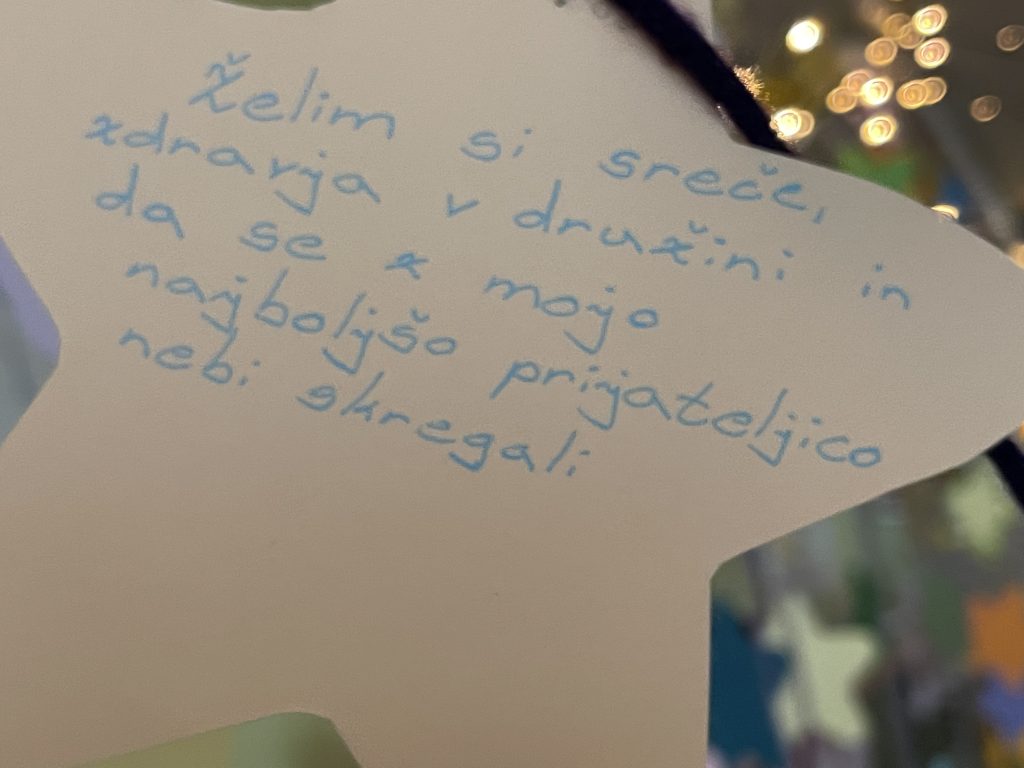 Želim si sreče,
zdravja v družini in
da se z mojo
najboljšo prijateljico
nebi skregali